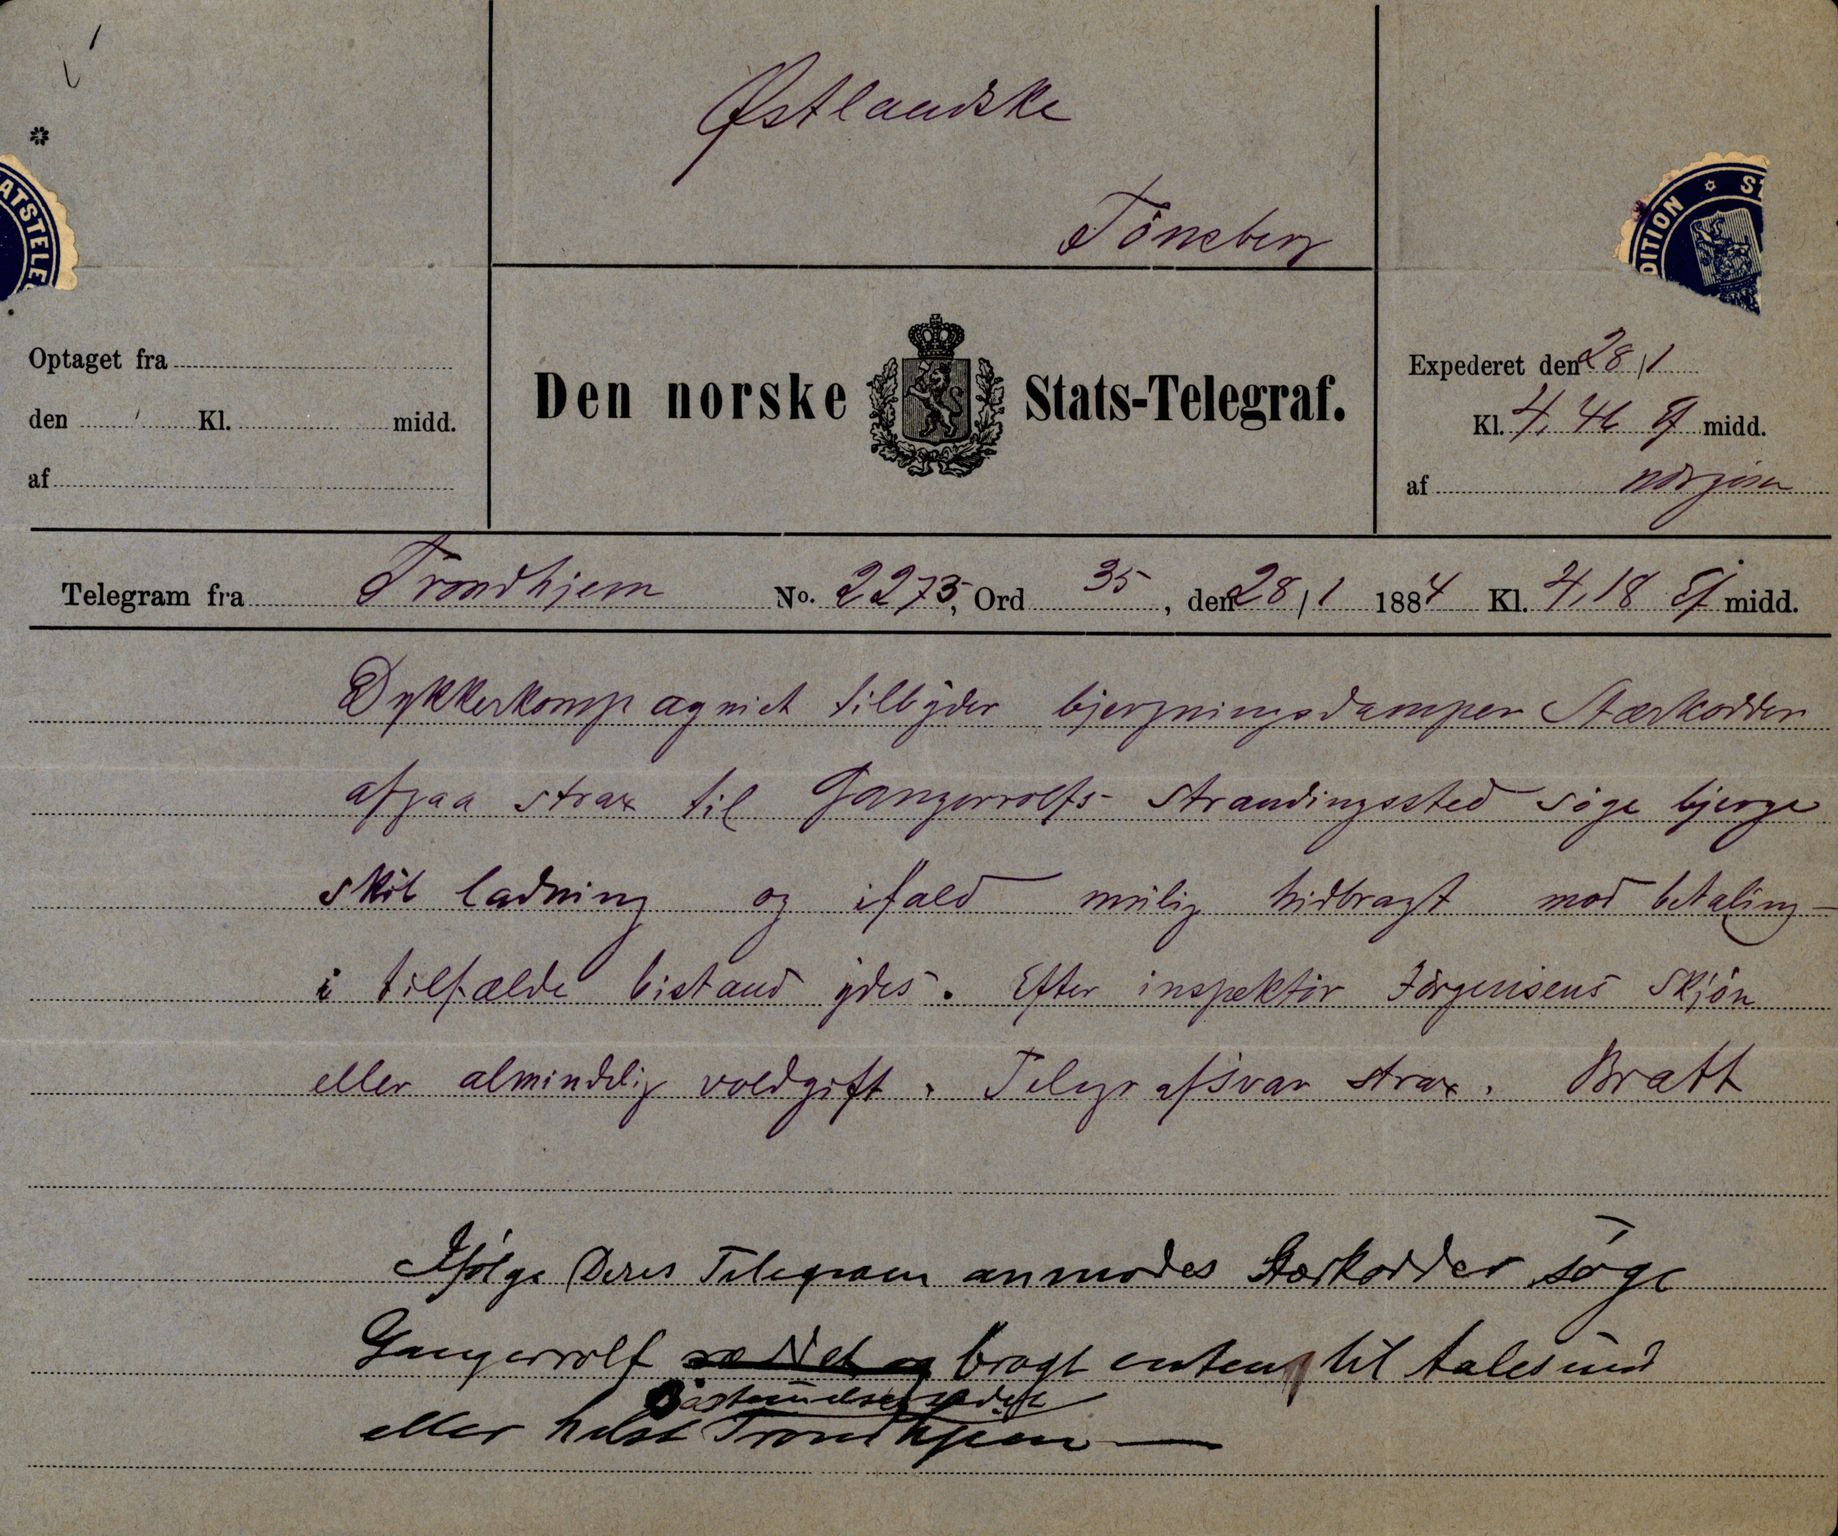 Østlandske
Tönsberg
ATSTELE
DITION ✡ S
Optaget fra
den Kl. midd.
af
Den norske Stats-Telegraf.
Expederet den 28/1
Kl. 4,46 Ef midd.
af
Telegram fra Trondhjem No. 2273, Ord 35, den 28/1 1884 Kl. 4,18 Ef midd.
Dykkerkompagniet tilbyder bjergningsdamper Stærkodder
afgaa strax til Gangerrolfs strandingssted söge bjerge
skib ladning og ifald mulig hidbragt mod betaling
i tilfælde bistand ydes. Efter inspektör Jörgensens Skjön
eller almindelig voldgift. Telegrafsvar strax. Bratt
Ifölge Deres Telegram anmodes Stærkodder söge
Gangerrolf bragt enten til Aalesund
eller helst Trondhjem